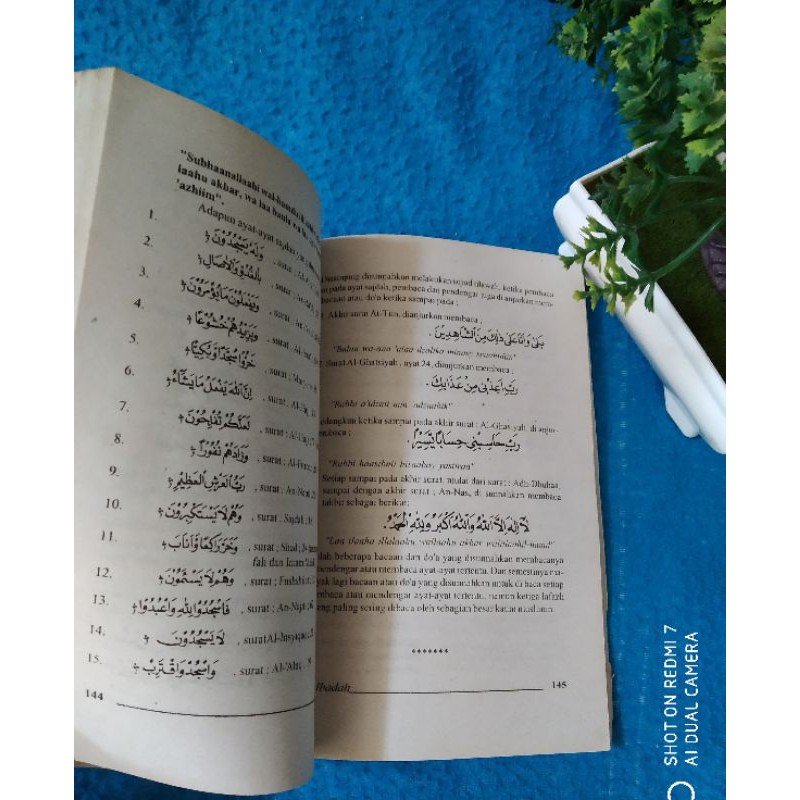 "Subhaanallaahi wal-hamdu
laahu akbar, wa laa haula wa
'azhiim".
Adapun ayat-ayat sajdah
1. وَلَهُ يَسْجُدُوْنَ
, surat ; Al-
2. بِالْغُدُوِّ وَالْآصَالِ
, surat
3. وَيَفْعَلُوْنَ مَا يُؤْمَرُوْنَ
, surat
4. وَيَزِيْدُهُمْ خُشُوْعًا
, surat
5. خَرُّوْا سُجَّدًا وَبُكِيًّا
, surat ;
6. اِنَّ اللهَ يَفْعَلُ مَا يَشَآءُ
, surat ; Al-
7. لَعَلَّكُمْ تُفْلِحُوْنَ
, surat ; Al-
8. وَزَادَهُمْ نُفُوْرًا
, surat ; Al-
9. رَبُّ الْعَرْشِ الْعَظِيْمِ
, surat ; An-Naml
10. وَهُمْ لَا يَسْتَكْبِرُوْنَ
, surat ; Sajdah
11. وَخَرَّ رَاكِعًا وَّاَنَابَ
, surat ; Shad ; 24
fah dan Imam
12. وَهُمْ لَا يَسْئَمُوْنَ
, surat ; Fushshilat
13. فَاسْجُدُوْا لِلّٰهِ وَاعْبُدُوْا
, surat ; An-Najm
14. لَا يَسْجُدُوْنَ
, surat Al-Insyiqaq
15. وَاسْجُدْ وَاقْتَرِبْ
, surat ; Al-'Alaq
144
disamping disunnahkan melakukan sujud tilawah, ketika pembaca
pada ayat sajdah, pembaca dan pendengar juga di anjurkan mem-
bacaan atau do'a ketika sampai pada ;
Akhir surat At-Tiin, dianjurkan membaca ;
بَلٰى وَاَنَا عَلٰى ذٰلِكَ مِنَ الشَّاهِدِيْنَ .
"Balaa wa-ana 'alaa dzalika minasy syaahidiin"
Surat Al-Ghatsiyah , ayat 24, dianjurkan membaca ;
رَبِّ اَعِذْنِيْ مِنْ عَذَابِكَ
"Rabbi a'idznii min 'adzaabik"
sedangkan ketika sampai pada akhir surat ; Al-Ghasyiyah, di
baca ;
رَبِّ حَاسِبْنِيْ حِسَابًا يَّسِيْرًا .
"Rabbi haasibnii hisaaban yasiiran"
Setiap sampai pada akhir surat mulai dari surat ; Adh-Dhuhaa
sampai dengan akhir surat ; An-Nas, di sunnahkan membaca
takbir sebagai berikut;
لَآ اِلٰهَ اِلَّا اللهُ وَاللهُ اَكْبَرُ وَلِلّٰهِ الْحَمْدُ .
"Laa ilaaha illallaahu wallaahu akbar walillaahil-hamd"
beberapa bacaan dan do'a yang disunnahkan membacanya
mendengar atau membaca ayat-ayat tertentu. Dan semestinya
lagi bacaan atau do'a yang disunnahkan untuk di baca setiap
membaca atau mendengar ayat-ayat tertentu, namun ketiga lafazh
yang paling sering di baca oleh sebagian besar kaum muslimin.
*******
Ibadah
145
SHOT ON REDMI 7
AI DUAL CAMERA